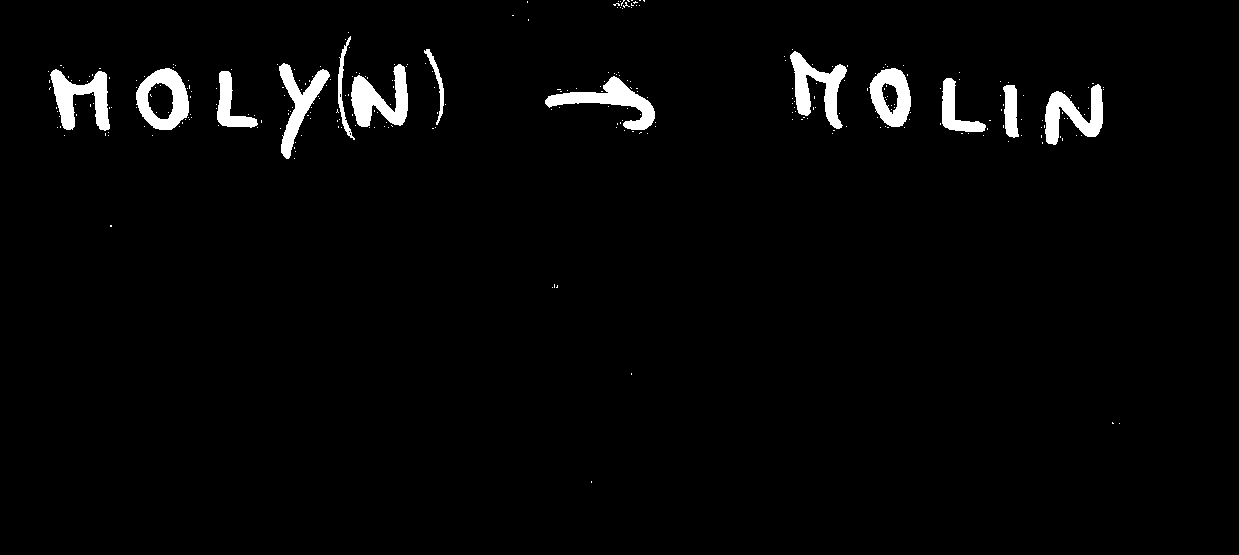 MOLY(N) → MOLIN